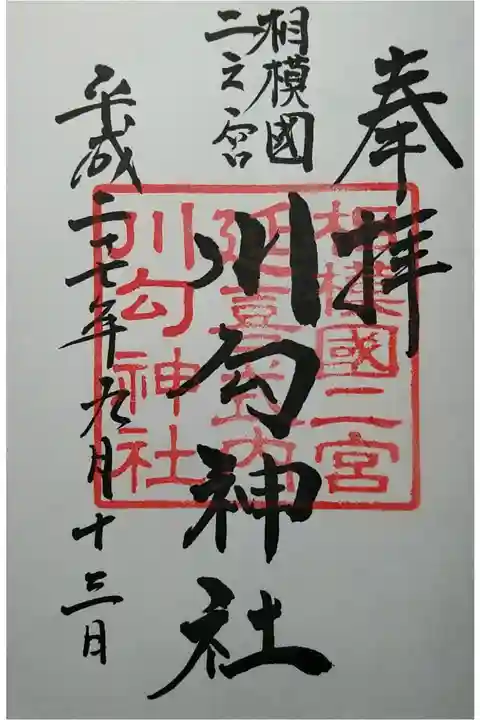 奉拝
相模國
二之宮
川勾神社
平成二十七年九月十三日
相模國二宮
延喜式内
川勾神社